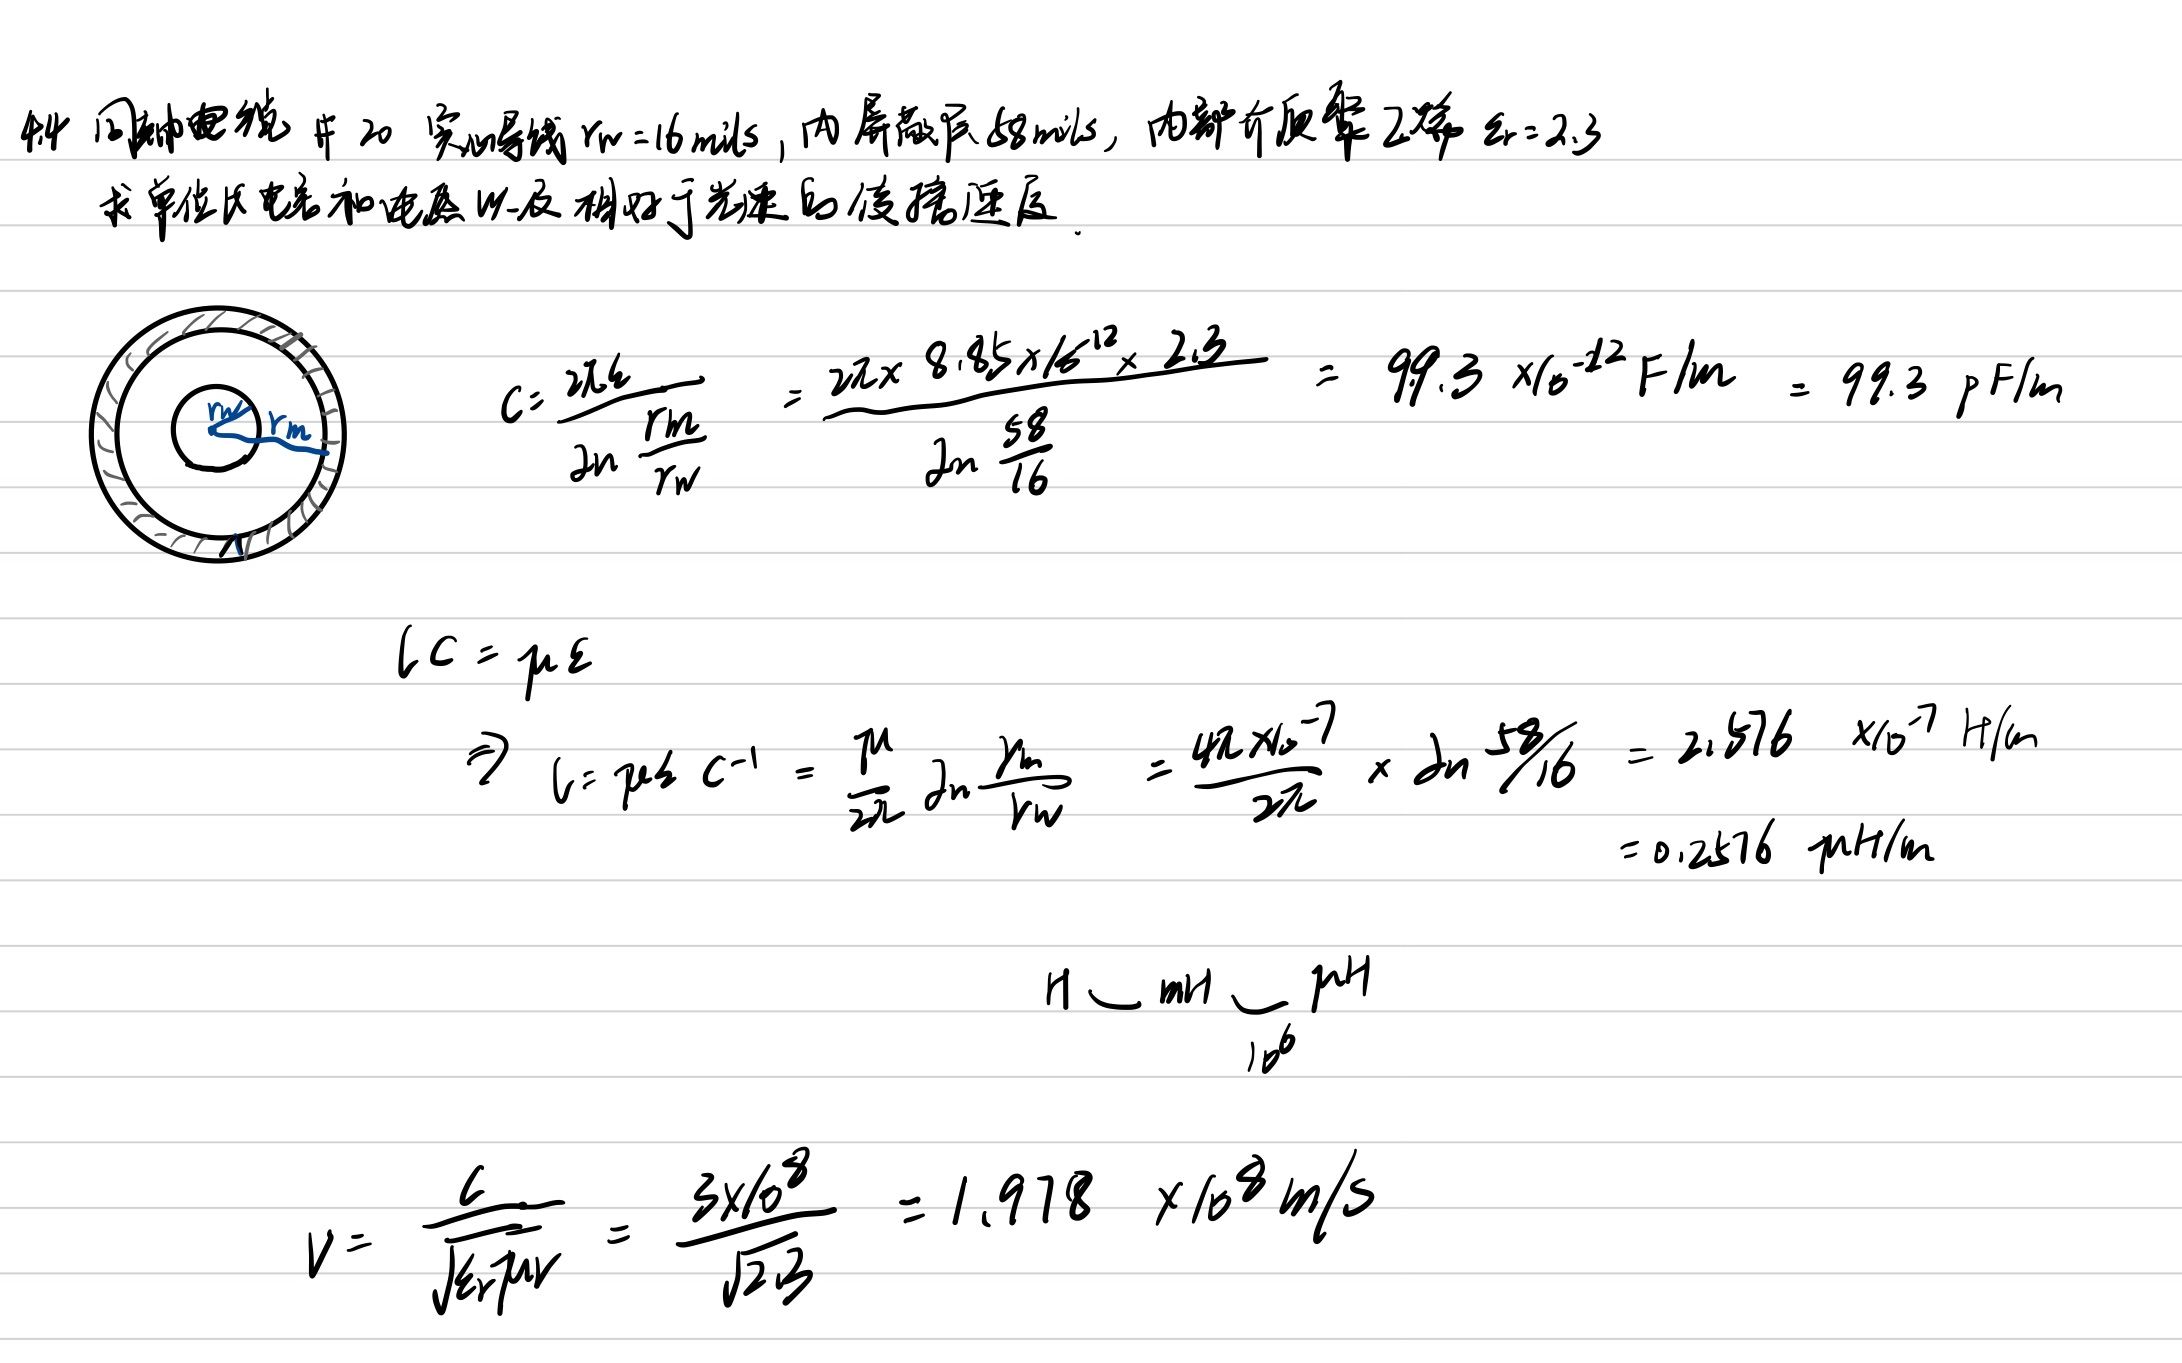 4.4 同轴电缆 #20 实心导线 rw=16mils, 内屏蔽层58mils, 内部介质聚乙烯 εr=2.3
求单位长电容和电感以及相对于光速的传播速度.
rw rm
C = 2πε / ln rm/rw = 2π× 8.85×10^-12 × 2.3 / ln 58/16 = 99.3 ×10^-12 F/m = 99.3 pF/m
lC = με
⇒ l = με C^-1 = μ/2π ln rm/rw = 4π×10^-7 / 2π × ln 58/16 = 2.576 ×10^-7 H/m
= 0.2576 μH/m
H mH μH
10^6
V = c / √εrμr = 3×10^8 / √2.3 = 1.978 ×10^8 m/s